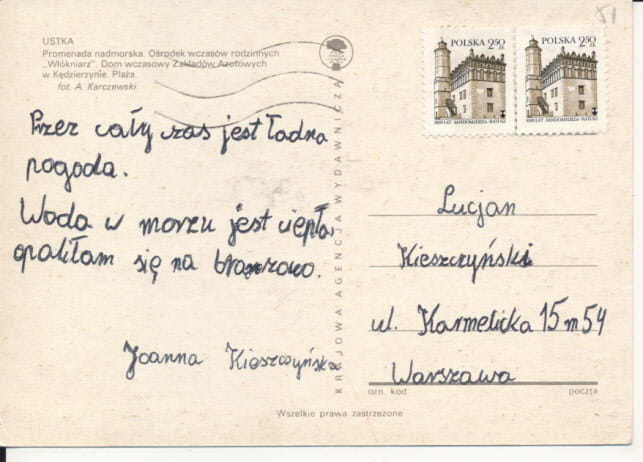 USTKA
Promenada nadmorska. Ośrodek wczasów rodzinnych
„Włókniarz". Dom wczasowy Zakładów Azotowych
w Kędzierzynie. Plaża
fot. A. Karczewski
Przez cały czas jest ładna
pogoda.
Woda w morzu jest ciepła,
opaliłam się na brązowo.
Joanna Kieszczyńska
KRAJOWA AGENCJA WYDAWNICZA
51
POLSKA 2,50 ZŁ
1000 LAT SANDOMIERZA-RATUSZ
POLSKA 2,50 ZŁ
1000 LAT SANDOMIERZA-RATUSZ
Lucjan
Kieszczyński
ul. Karmelicka 15 m 54
Warszawa
ozn. kod poczta
Wszelkie prawa zastrzeżone